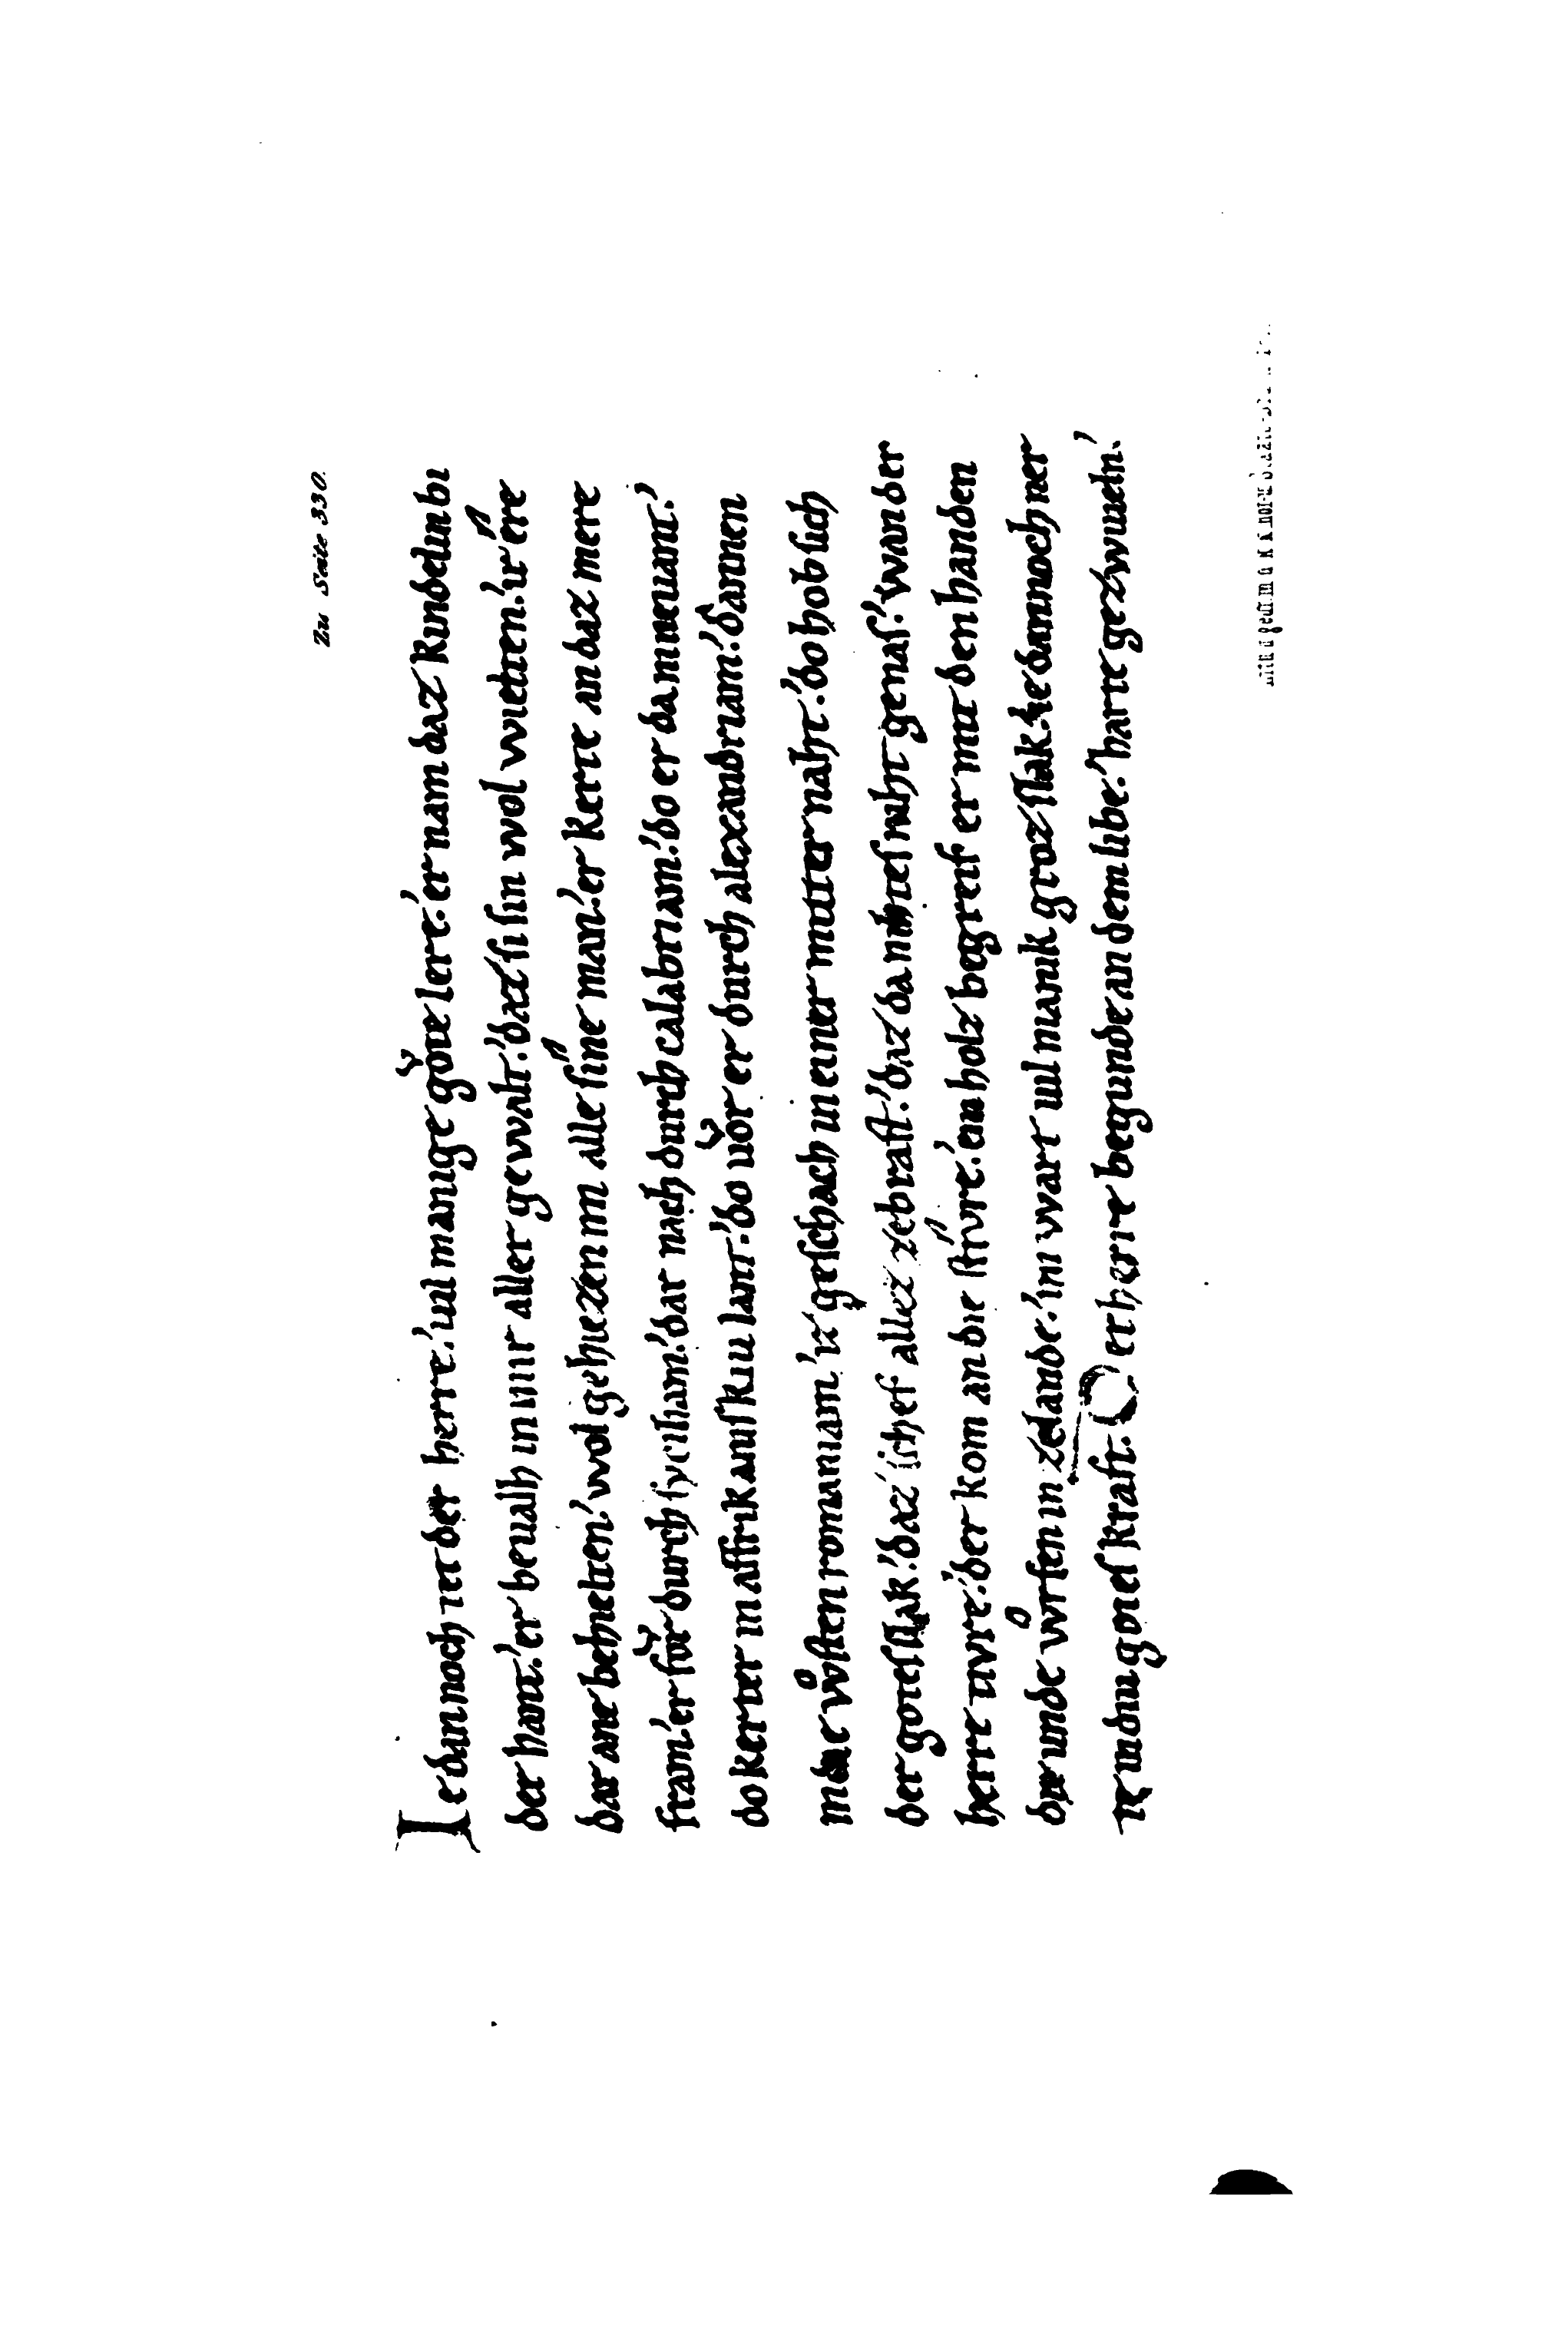 Zu Seite 330.
Ie dannoch tet der herre. uil manige gǒte lere. er nam daz kindelin bi
der hant. er beualh in mir aller gewalt. daz si sin wol wielten. ir ere
dar ane behielten. wol gehiezen im alle sine man. er kerte an daz mere
fram. er fǒr durch syciliam. dar nach durch calabriam. do er da niewant.
do kerter in affrikanskiu lant. do uǒr er durch alexandriam. dannen
in die wůsten romaniam. iz geschach in einer mitter naht. do hob sich
der gotes slak. daz schef allez zebrast. daz da nihtes niht genas. wan der
herre tivre. der kom an die stivre. ein holz begreif er mit den handen
die unde wůrfen in ze lande. im wart uil manik groz slak. ie dannoch ner
te in diu gotes kraft. Der herre begunde an dem libe. harte gezwiueln.